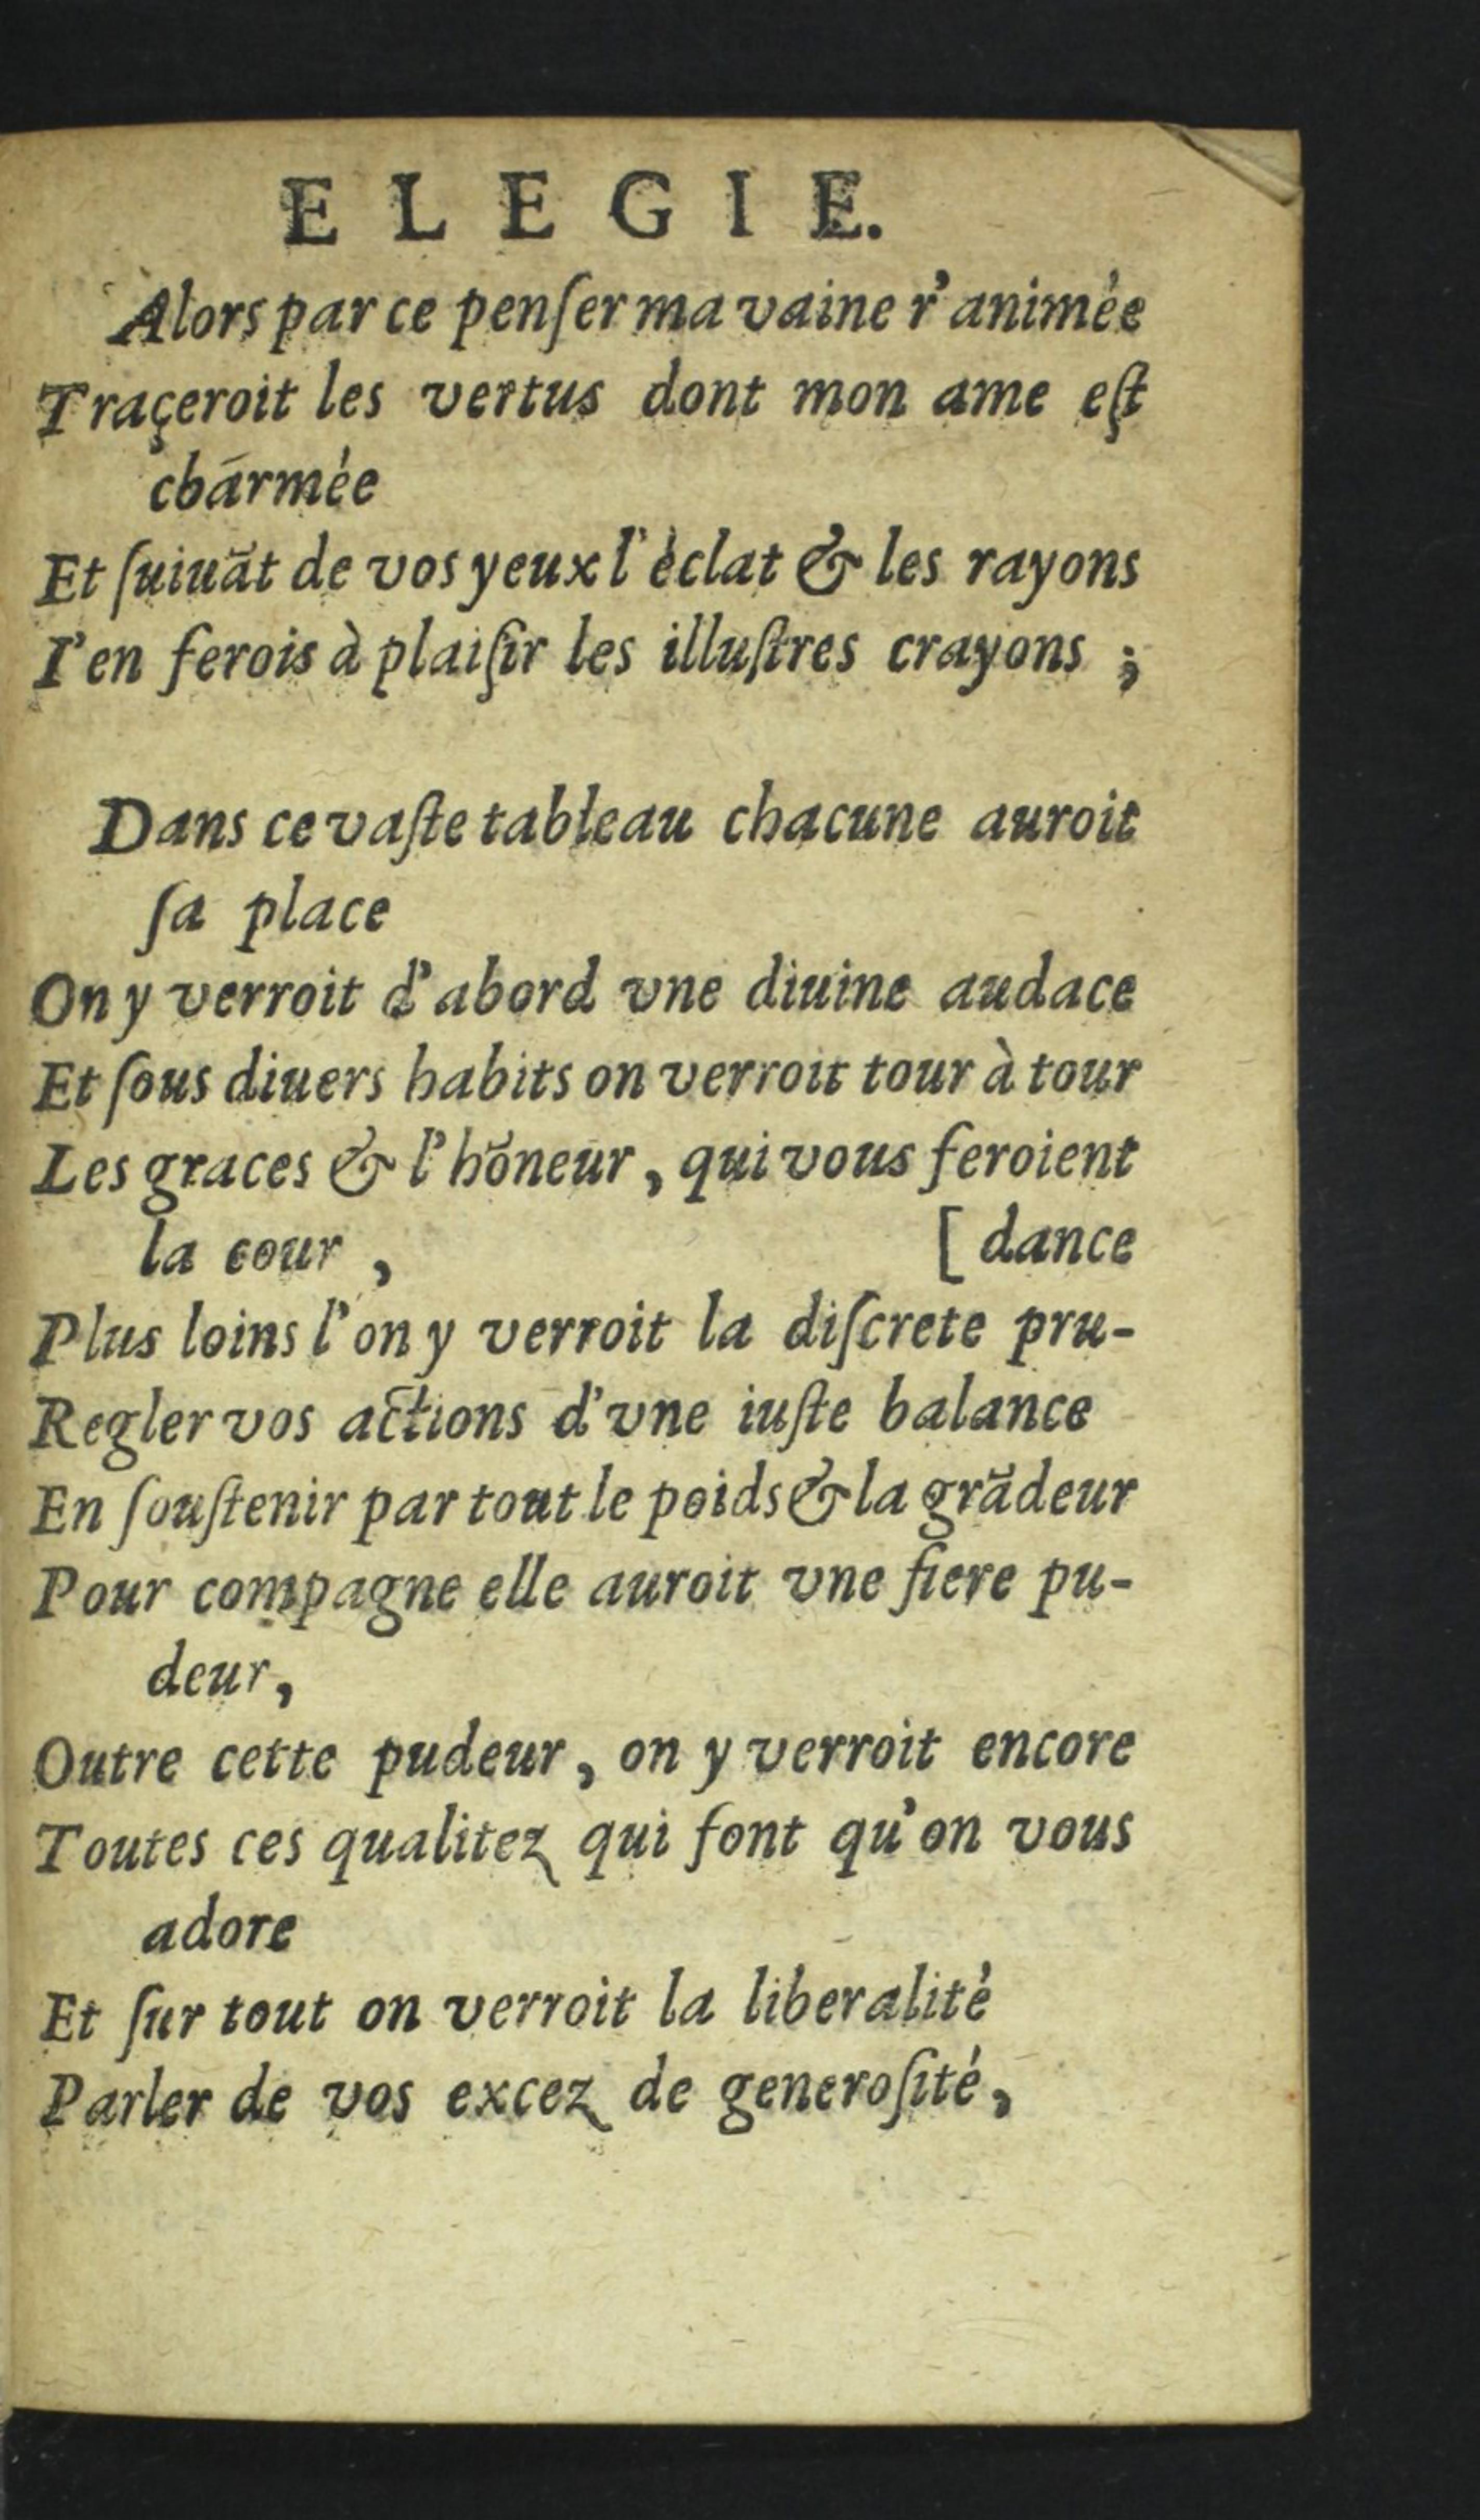 ELEGIE.
Alors par ce penſer ma vaine r'animée
Traçeroit les vertus dont mon ame eſt
chármée
Et ſuiuãt de vos yeux l'éclat & les rayons
I'en ferois à plaiſir les illuſtres crayons ;
Dans ce vaſte tableau chacune auroit
ſa place
On y verroit d'abord vne diuine audace
Et ſous diuers habits on verroit tour à tour
Les graces & l'hõneur, qui vous feroient
la cour , [ dance
Plus loins l'on y verroit la diſcrete pru-
Regler vos actions d'vne iuſte balance
En ſouſtenir par tout le poids & la grãdeur
Pour compagne elle auroit vne fiere pu-
deur,
Outre cette pudeur, on y verroit encore
Toutes ces qualitez qui font qu'on vous
adore
Et ſur tout on verroit la liberalité
Parler de vos excez de generoſité,